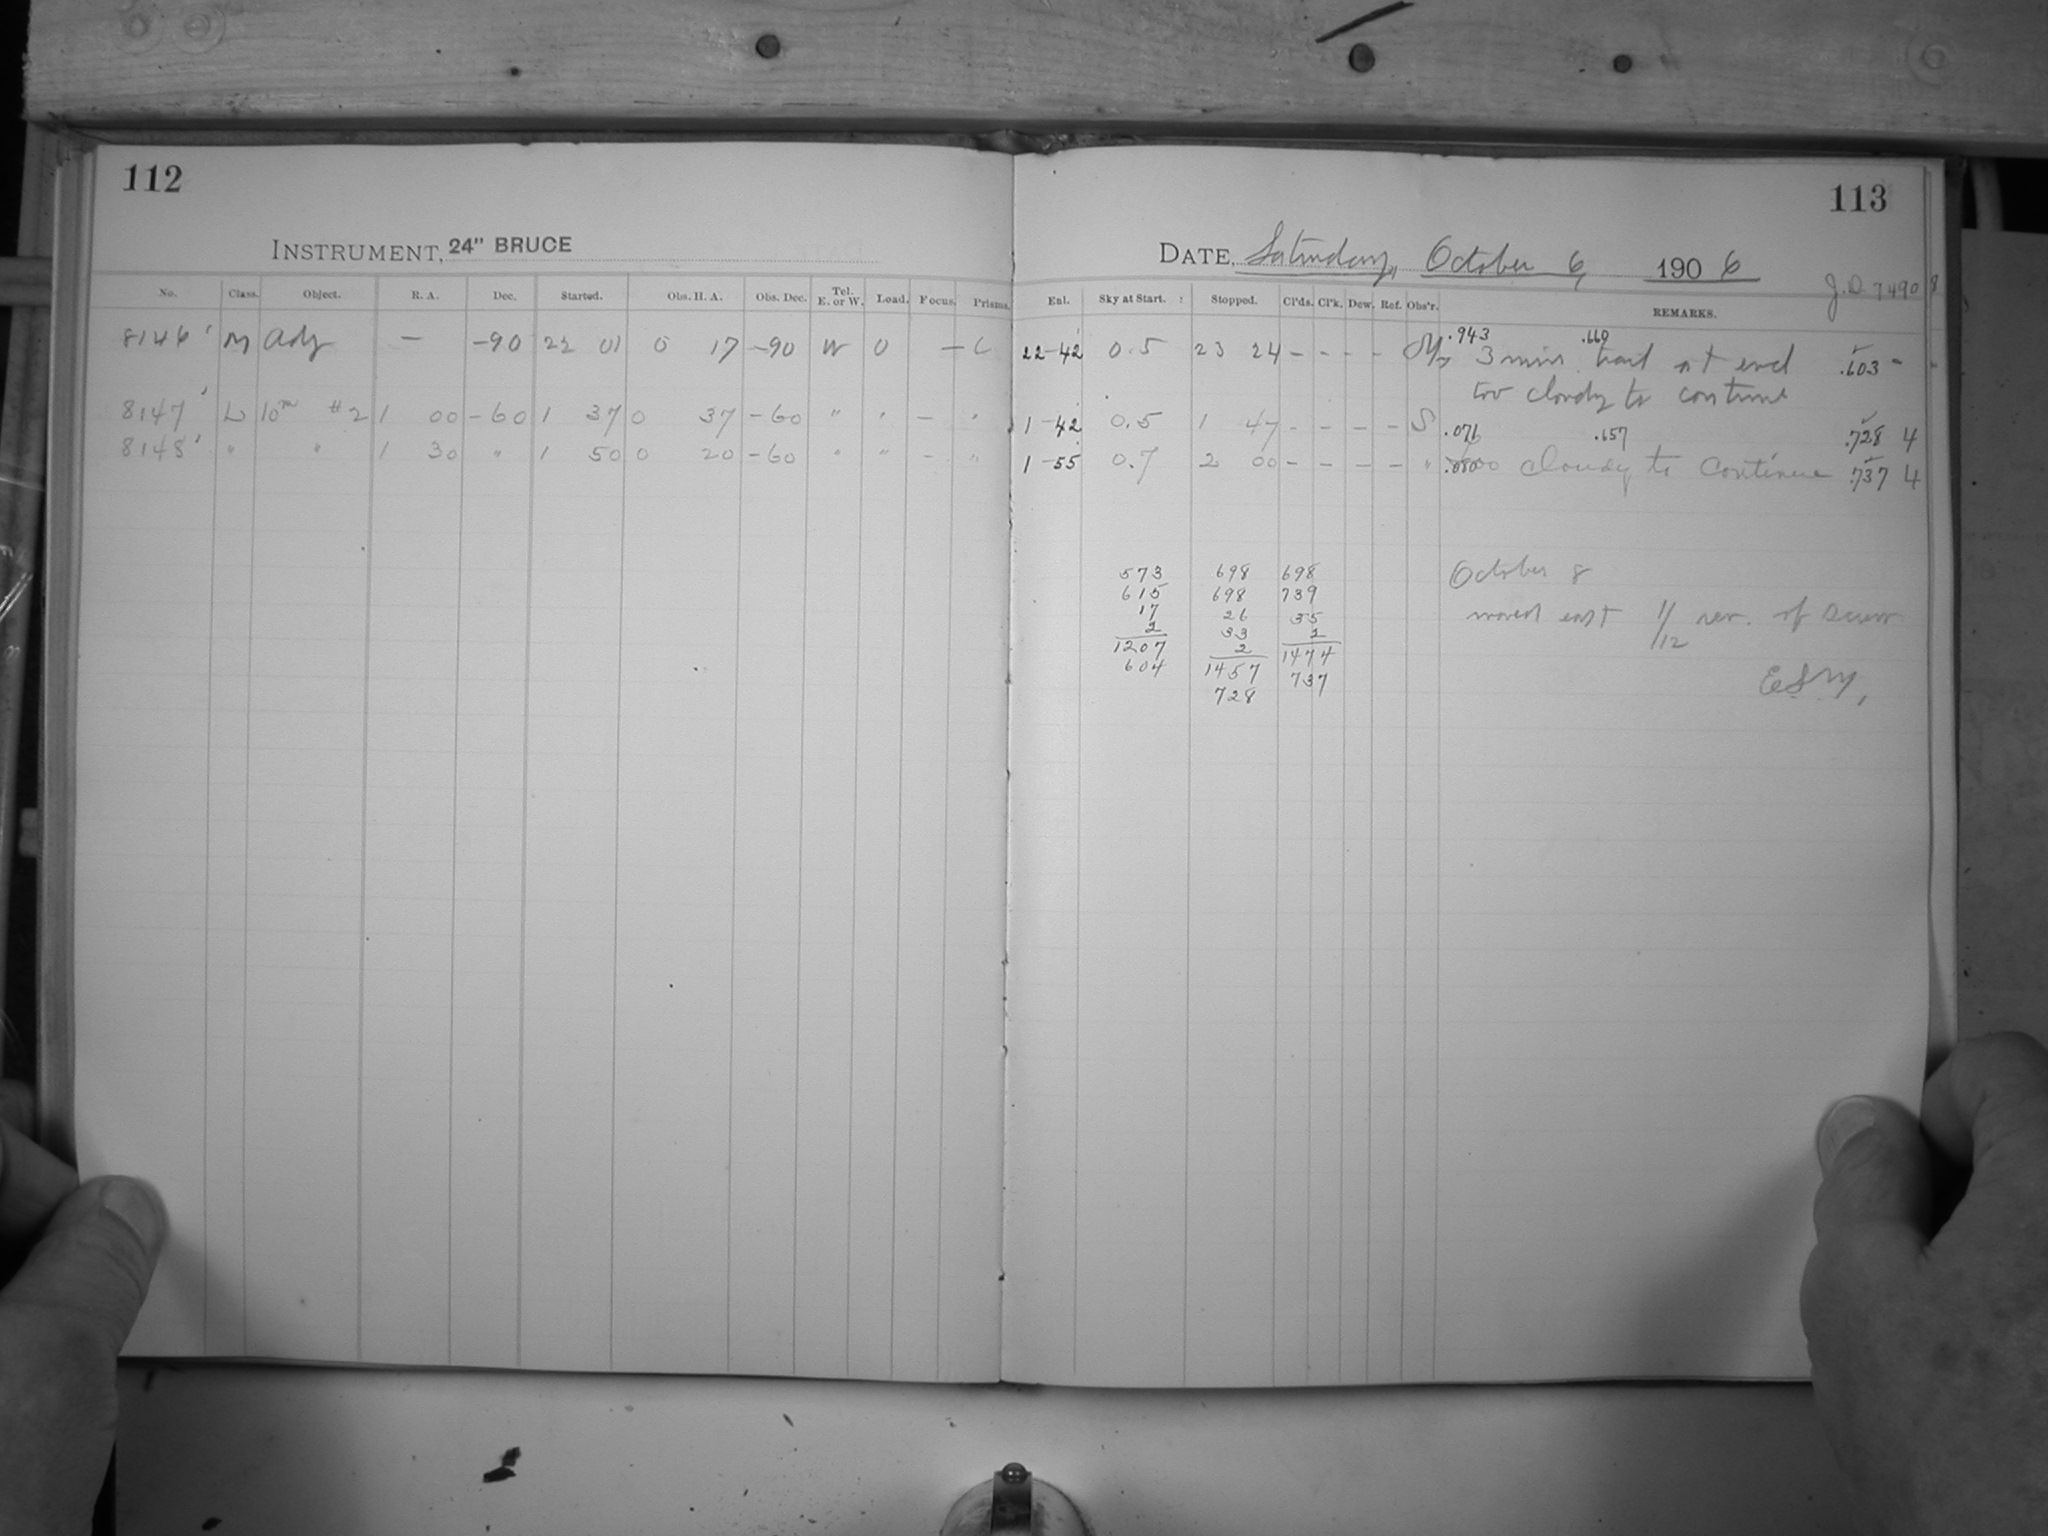 112
113
INSTRUMENT, 24" BRUCE
DATE, Saturday, October 6, 1906
J.D 7490
No. Class. Object. R. A. Dec. Started. Obs. H. A. Obs. Dec. Tel. E. or W. Load. Focus. Prisms.
Enl. Sky at Start. Stopped. Cl'ds. Cl'k. Dew. Ref. Obs'r. REMARKS.
8146 M Adj — -90 22 01 0 17 -90 W 0 — C
22-42 0.5 23 24 - - - - .943 .660 3 min trail at end .603 -
too cloudy to continue
8147 L 10m #2 1 00 -60 1 37 0 37 -60 " " — "
1-42 0.5 1 47 - - - - S .076 .657 .728 4
8148 " " 1 30 " 1 50 0 20 -60 " " — "
1-55 0.7 2 00 - - - - " .080 too cloudy to continue .737 4
573 698 698
615 698 739
17 26 35
2 33 2
1207 2 1474
604 1457 737
728
October 8
moved east 1/12 rev. of screw
ESM,